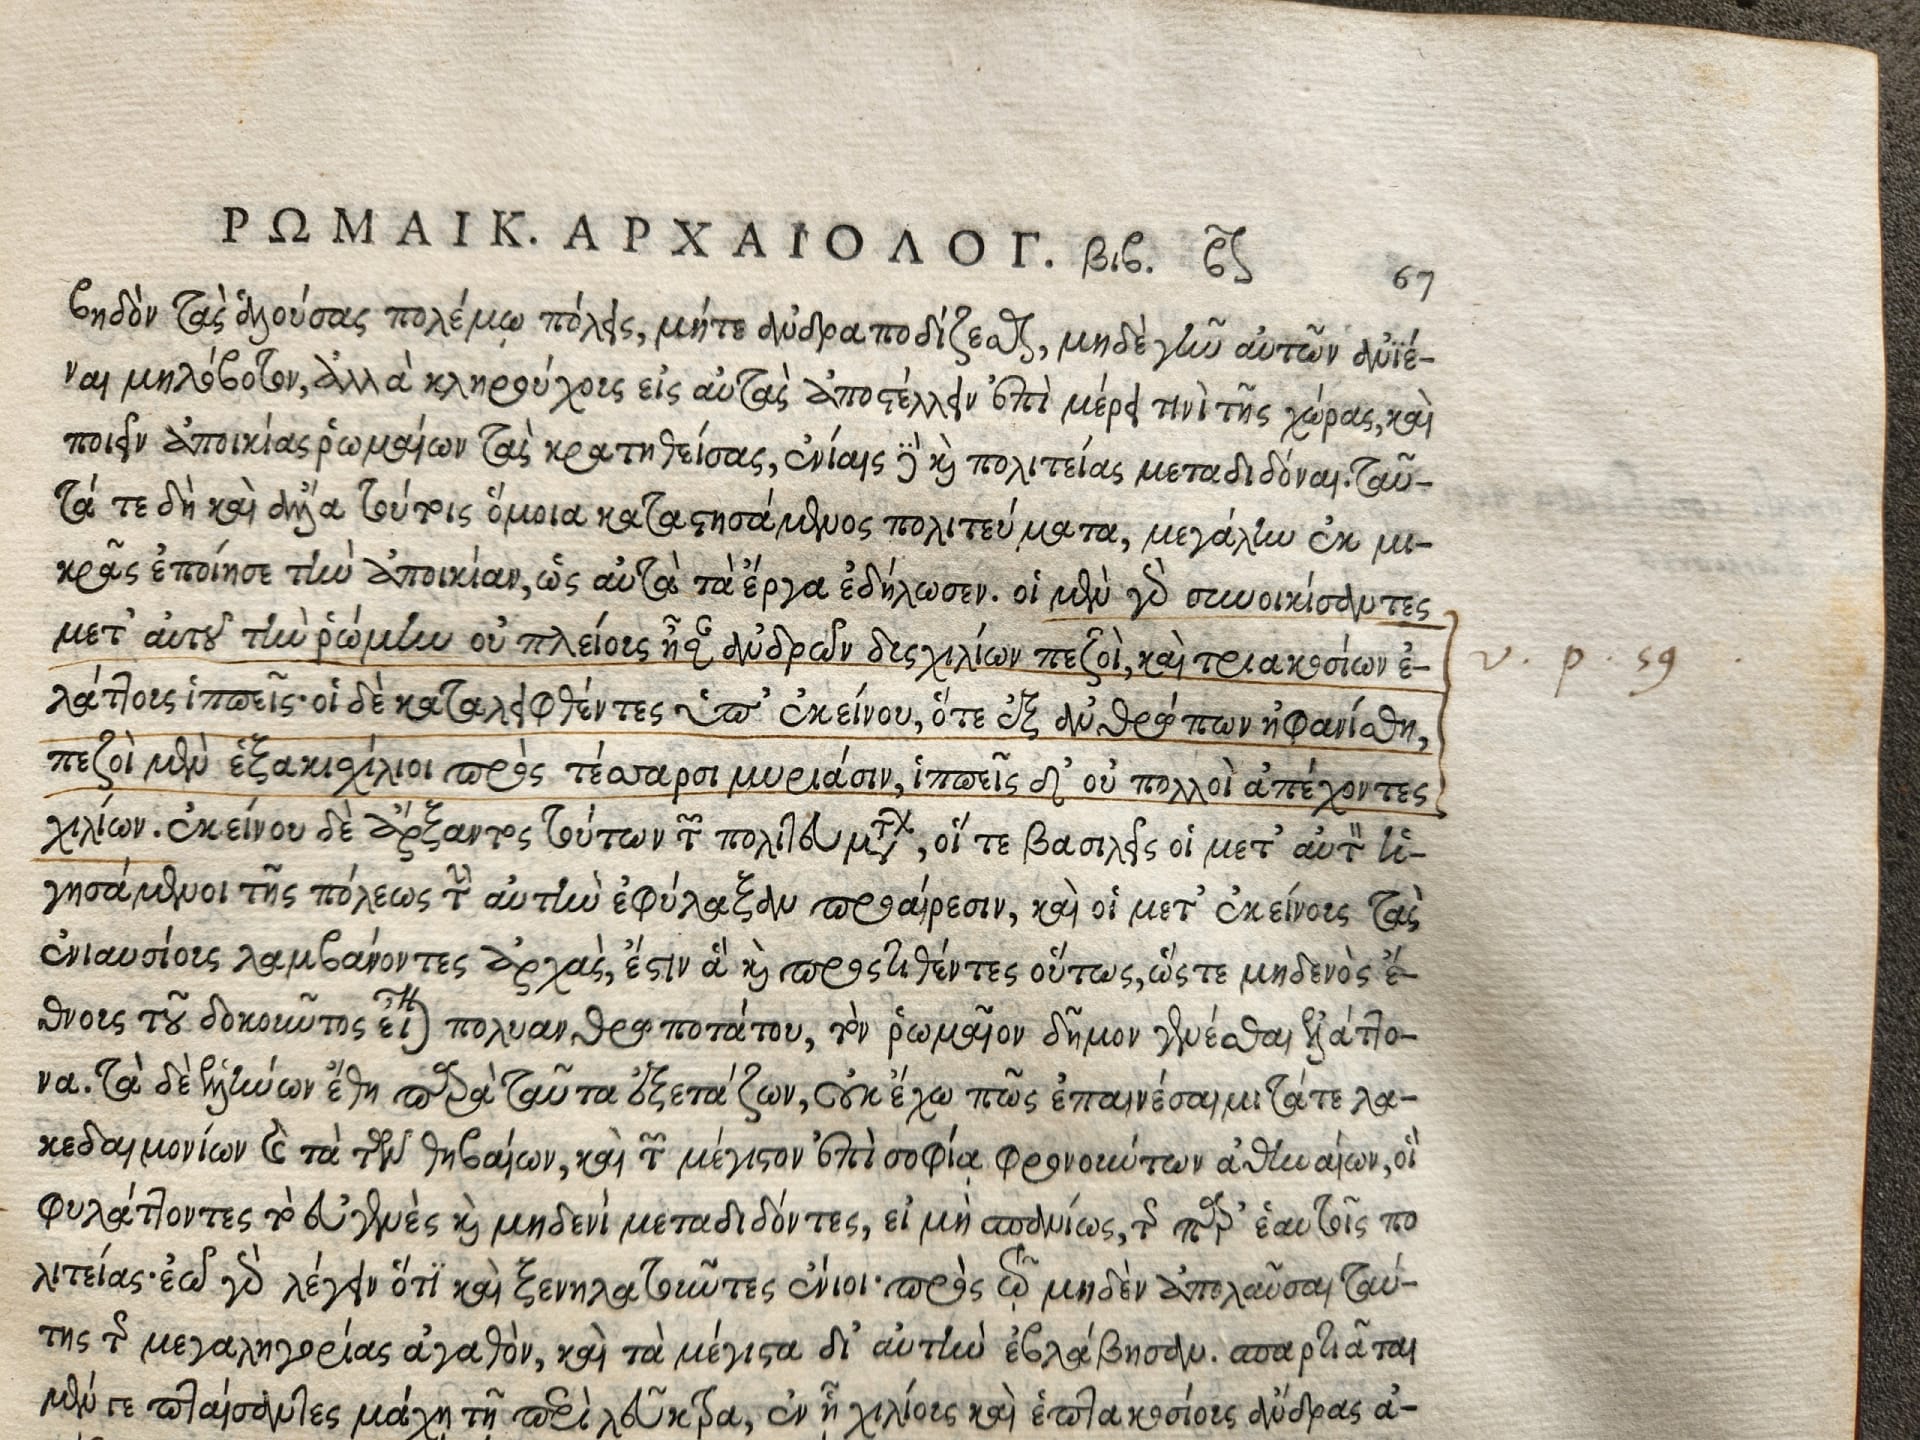 ΡΩΜΑΙΚ. ΑΡΧΑΙΟΛΟΓ. βιβ. 67
βηδὸν τὰς ἁλούσας πολέμῳ πόλεις, μήτε ἀνδραποδίζεσθαι, μηδὲ γῆν αὐτῶν ἀνϊέ-
ναι μηλόβοτον, ἀλλὰ κληρούχους εἰς αὐτὰς ἀποστέλλειν ἐπὶ μέρει τινὶ τῆς χώρας, καὶ
ποιεῖν ἀποικίας ῥωμαίων τὰς κρατηθείσας, ἐνίαις δὲ καὶ πολιτείας μεταδιδόναι. ταῦ-
τά τε δὴ καὶ ἄλλα τούτοις ὅμοια καταστησάμενος πολιτεύματα, μεγάλην ἐκ μι-
κρᾶς ἐποίησε τὴν ἀποικίαν, ὡς αὐτὰ τὰ ἔργα ἐδήλωσεν. οἱ μὲν γὰρ συνοικίσαντες
μετ' αὐτοῦ τὴν ῥώμην οὐ πλείους ἦσαν ἀνδρῶν διςχιλίων πεζοὶ, καὶ τριακοσίων ἐ-
λάττους ἱππεῖς· οἱ δὲ καταλειφθέντες ὑπ' ἐκείνου, ὅτε ἐξ ἀνθρώπων ἠφανίσθη,
πεζοὶ μὲν ἑξακιςχίλιοι πρὸς τέσσαρσι μυριάσιν, ἱππεῖς δ' οὐ πολλοὶ ἀπέχοντες
χιλίων. ἐκείνου δὲ ἄρξαντος τούτων τῶν πολιτευμάτων, οἵ τε βασιλεῖς οἱ μετ' αὐτὸν ἡ-
γησάμενοι τῆς πόλεως τὴν αὐτὴν ἐφύλαξαν προαίρεσιν, καὶ οἱ μετ' ἐκείνους τὰς
ἐνιαυσίους λαμβάνοντες ἀρχὰς, ἔστιν ἃ καὶ προςτιθέντες οὕτως, ὥςτε μηδενὸς ἔ-
θνους τοῦ δοκοῦντος εἶναι πολυανθρωποτάτου, τὸν ῥωμαῖον δῆμον γενέσθαι ἐλάττο-
να. τὰ δὲ ἑλλήνων ἔθη παρὰ ταῦτα ἐξετάζων, οὐκ ἔχω πῶς ἐπαινέσαιμι τά τε λα-
κεδαιμονίων καὶ τὰ τῶν θηβαίων, καὶ τῶν μέγιστον ἐπὶ σοφίᾳ φρονούντων ἀθηναίων, οἳ
φυλάττοντες τὸ εὐγενὲς καὶ μηδενὶ μεταδιδόντες, εἰ μὴ σπανίως, τῆς παρ' ἑαυτοῖς πο
λιτείας· ἐῶ γὰρ λέγειν ὅτϊ καὶ ξενηλατοῦντες ἔνιοι· πρὸς τῷ μηδὲν ἀπολαῦσαι ταύ-
της τῆς μεγαληγορίας ἀγαθὸν, καὶ τὰ μέγιστα δι' αὐτὴν ἐβλάβησαν. σπαρτιᾶται
μέν γε πταίσαντες μάχῃ τῇ περὶ λεῦκτρα, ἐν ᾗ χιλίους καὶ ἑπτακοσίους ἄνδρας ἀ-
v. p. 59